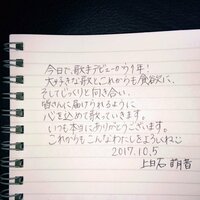 今日で、歌手デビューから1年!
大好きな歌とこれからも貪欲に、
そしてじっくりと向き合い、
皆さんに届けられるように
心を込めて歌っていきます。
いつも本当にありがとうございます。
これからもこんなわたしをよろしくね
2017.10.5
上白石 萌音